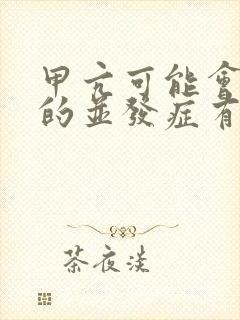 甲亢可能會
的並發症有
茶夜淡